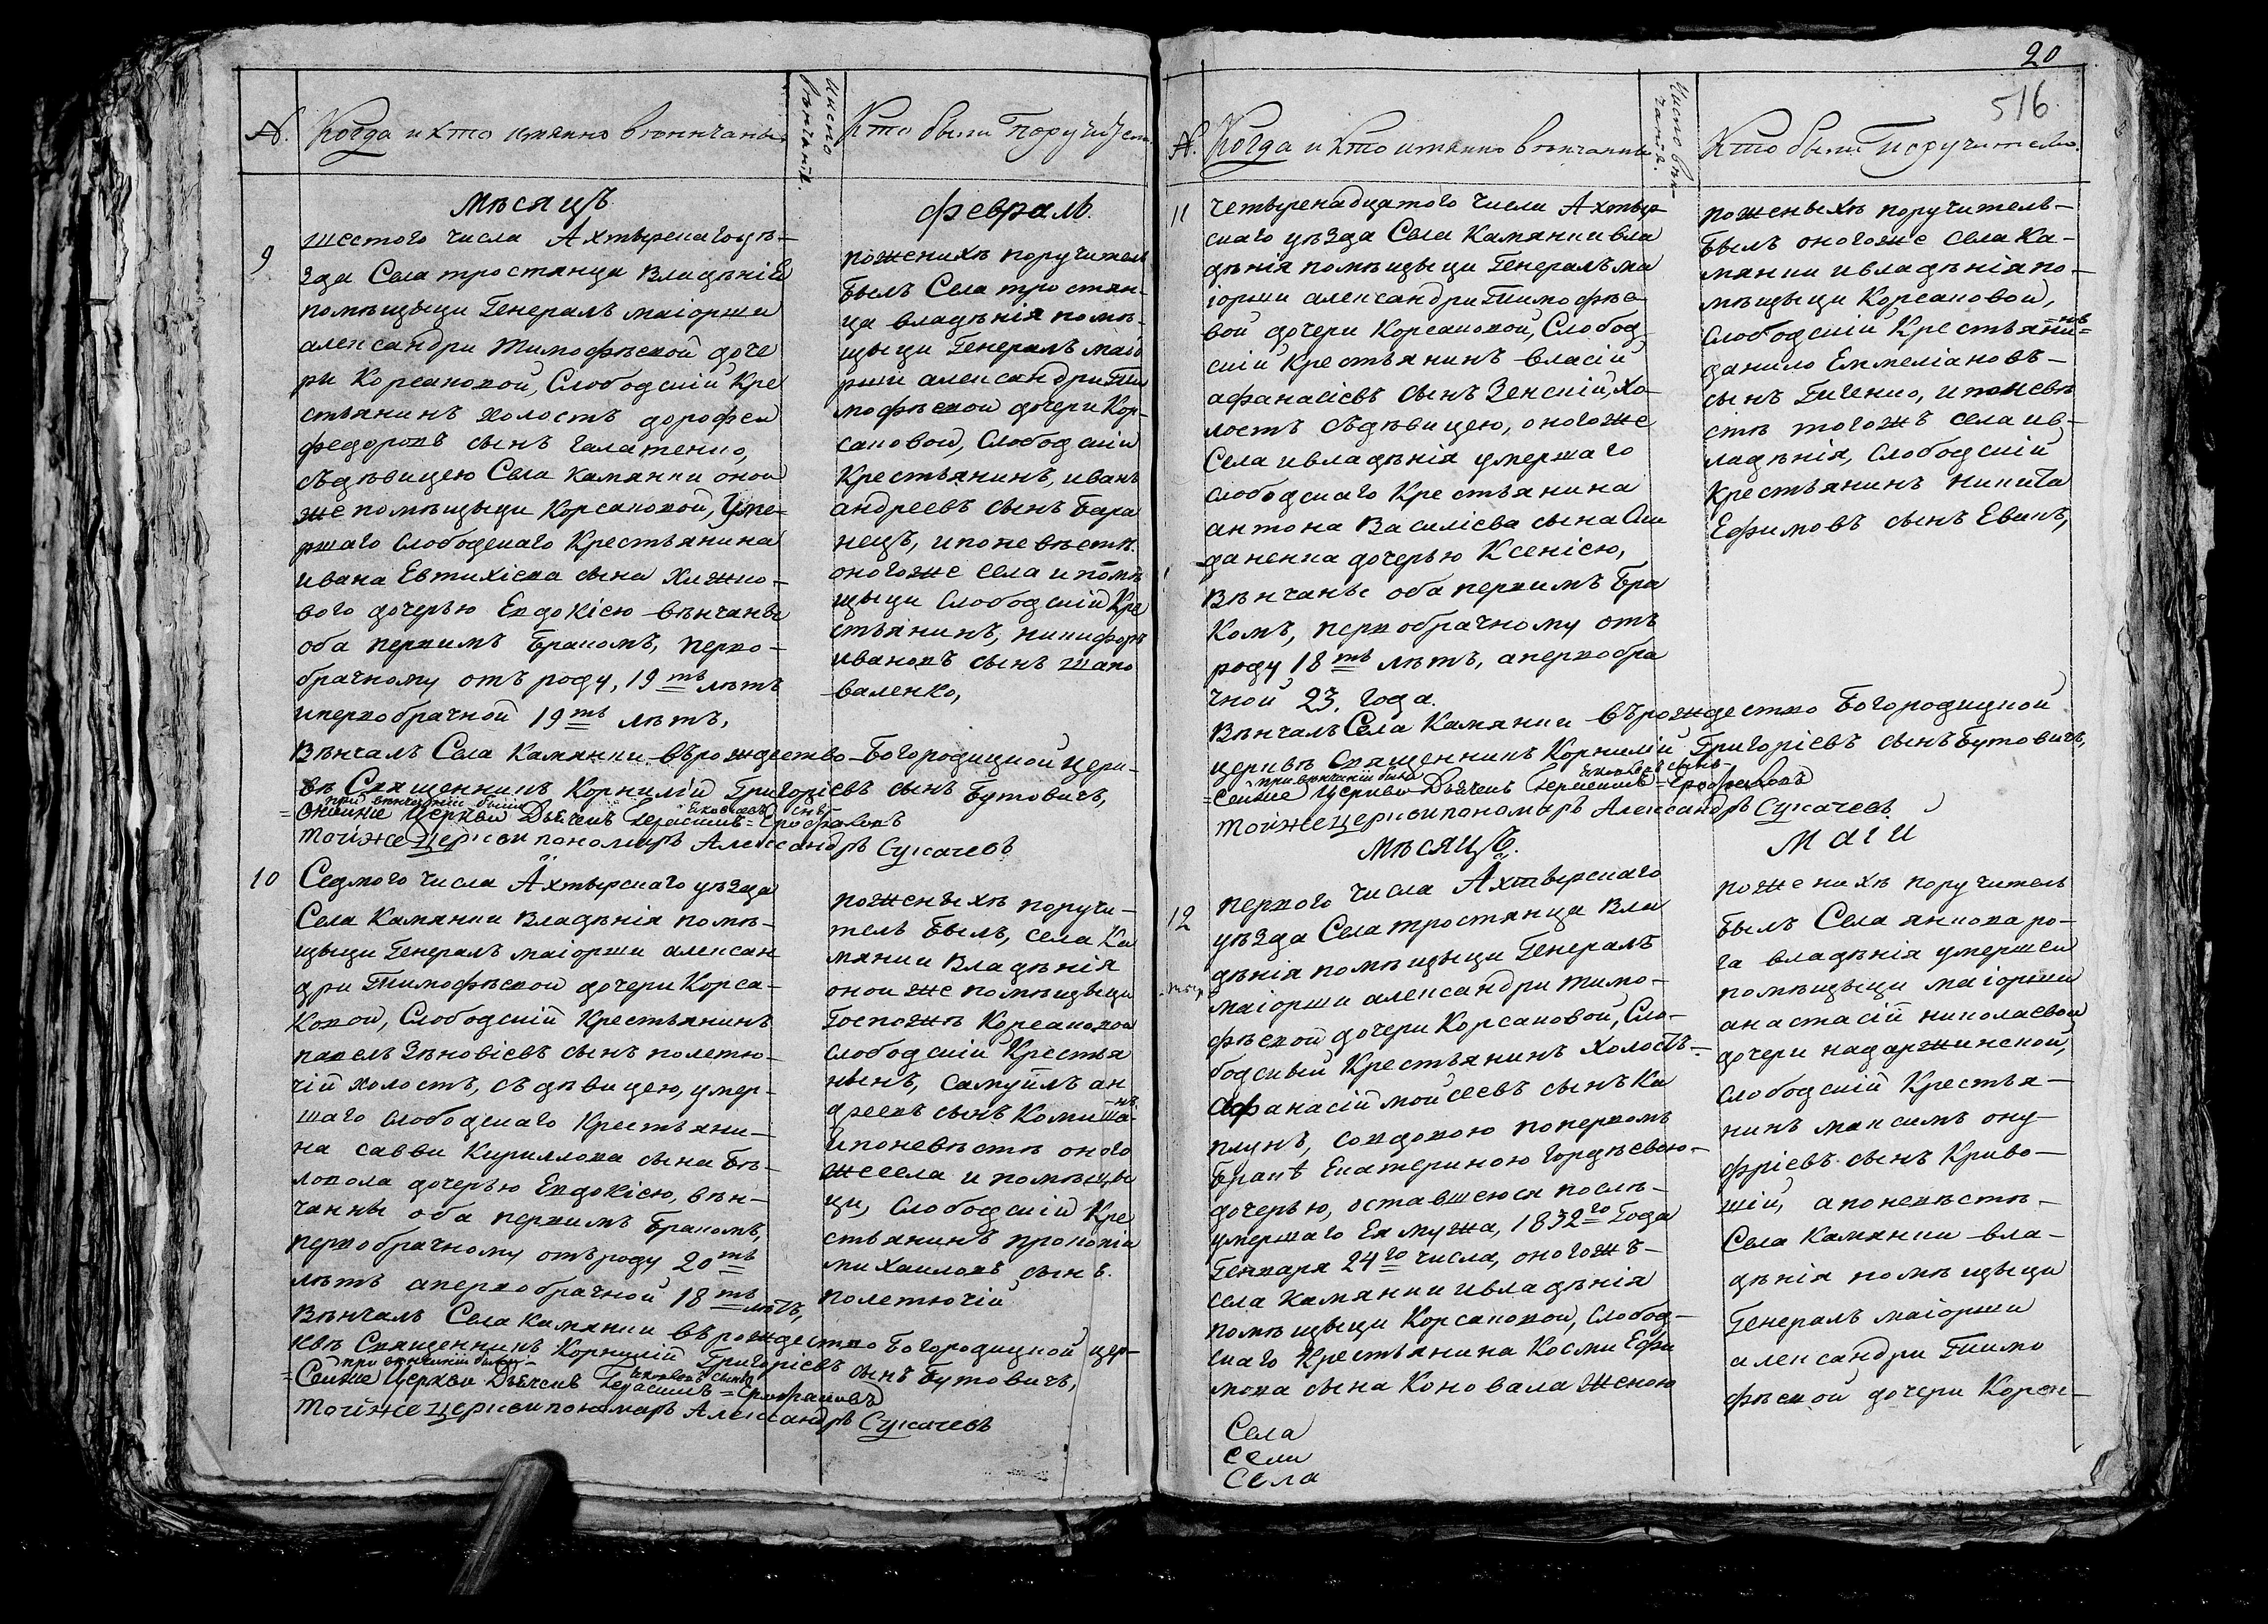 №. Когда и кто имянно вѣнчаны.
Число вѣнчанія.
Кто были поручители
Мѣсяцъ
февраль.
9
шестого числа Ахтырскаго уѣ-
зда Села тростянца владѣнія
помѣщыци Генералъ маіорши
александри Тимофѣевой доче
ри Корсаковой, Слободскій Кре
стьянинъ холостъ дорофей
федоровъ сынъ галатенко,
съдѣвицею Села каманки оной
же помѣщыци Корсаковой, Уме-
ршаго Слободскаго Крестьянина
ивана Евтихіева сына Хижно-
вого дочерью Евдокіею вѣнчаны
оба первимъ бракомъ, перво-
брачному отъ роду, 19ть лѣтъ
ипервобрачной 19ть лѣтъ,
пожениху поручитель
былъ Села тростян-
ца владѣнія помѣ-
щыци Генералъ маіо
рши александри Ти
мофѣевой дочери Кор-
саковой, Слободскій
Крестьянинъ, иванъ
андреевъ сынъ бара
нецъ, и по невѣстѣ.
оногоже села и помѣ
щыци Слободскій Кре
стьянинъ, никифоръ
ивановъ сынъ шапо
валенко,
Вѣнчалъ Села каманки въ рождество-Богородицкой церк-
вѣ Священникъ Корнилій Григоріевъ сынъ Бутовичъ,
при вѣнчаніи были
Яковлевъ сынъ
Церкви Дьячекъ Герасимъ = Ерофаловъ
тойже церкви пономарь Александръ Сукачевъ
10
Седмого числа Ахтырскаго уѣзда
Села Каманки Владѣнія помѣ-
щыци Генералъ маіорши алексан
дри Тимофѣевой дочери Корса-
ковой, Слободскій Крестьянинъ
павелъ Зѣновіевъ сынъ полетю-
чій холостъ, съ дѣвицею, умер-
шаго Слободскаго Крестьяни-
на савви Кириллова сына Бѣ-
локола дочерью Евдокіею, вѣн-
чанны оба первимъ бракомъ,
первобрачному отъ роду 20ть
лѣтъ апервобрачной 18ть лѣтъ,
поженыху поручи-
тель былъ, села Ка
манки Владѣнія
оной же помѣщыци
Госпожѣ Корсаковой
Слободскій Крестья
нынъ, самуйлъ ан
дреевъ сынъ Комиша-нъ
ипоневѣстѣ оного
жсела и помѣщы
ци, Слободскій Кре
стьянинъ прокопій
михаиловъ сынъ
полетючій
Вѣнчалъ Села Каманки въ рождество Богородицкой цер-
квѣ Священникъ Корнилій Григоріевъ сынъ Бутовичъ,
при вѣнчаніи были-
Яковлевъ сынъ
Церкви Дьячекъ Герасимъ = Ерофаловъ
тойже церкви пономарь Александръ Сукачевъ
20
516.
№. Когда и кто имянно вѣнчанны
Число вѣн-
чанія.
Кто были Поручители.
11
Четыренадцатого числа Ахтыр-
скаго уѣзда Села Каманки вла
дѣнія помѣщыци Генералъ ма
іорши александри Тимофѣе-
вой дочери Корсаковой, Слобод
скій Крестьянинъ власій
афанасіевъ сынъ Зенскій, хо-
лостъ съдѣвицею, оногоже
Села ивладѣнія умершаго
слободскаго Крестьянина
антона Василіева сына
даненка дочерью Ксеніею,
Вѣнчаны оба первимъ бра
комъ, первобрачному отъ
роду 18ть лѣтъ, апервобра
чной 23. года.
поженыху поручитель-
былъ оногоже села Ка-
манки ивладѣнія по-
мѣщыци Корсаковой,
Слободскій Крестьяни-нъ=
данило Емеліановъ-
сынъ Гиченко, и поневѣ
стѣ тогожъ села ив-
ладѣнія, Слободскій
Крестьянинъ никита
Ефимовъ сынъ Евикъ,
Вѣнчалъ Села Каманки въ рождество Богородицкой
церквѣ Священникъ Корнилій Григоріевъ сынъ Бутовичъ,
при вѣнчаніи были
Яковлевъ сынъ-
Церкви Дьячекъ Герасимъ = Ерофаловъ
тойже церкви пономарь Александръ Сукачевъ
Мѣсяцъ.
Маій
12
первого числа Ахтырскаго
уѣзда Села тростянца вла
дѣнія помѣщыци Генералъ
маіорши александри тимо-
фѣевой дочери Корсаковой, Сло-
бодскый Крестьянинъ холостъ-
Афанасій мойсеевъ сынъ Ка
плунъ, совдовою попервомъ
бракѣ Екатериною Гордѣевою-
дочерью, оставшеюся послѣ-
умершаго Ея мужа, 1832го Года
Генваря 24го числа, оногожъ-
села каманки ивладѣнія
помѣщыци Корсаковой, Слобод-
скаго Крестьянина Косми Ефи
мова сына Коновала женою
пожениху поручитель
былъ Села янкова ро-
га владѣнія умершей
помѣщыци маіорши
анастасій николаевой
дочери надаржинской,
Слободскій Крестья-
нинъ максимъ ону-
фріевъ сынъ Криво-
шій, а поневѣстѣ-
Села Каманки вла-
дѣнія помѣщыци
Генералъ маіорши
александри Тимо
фѣевой дочери Корса-
Села
Села
Села